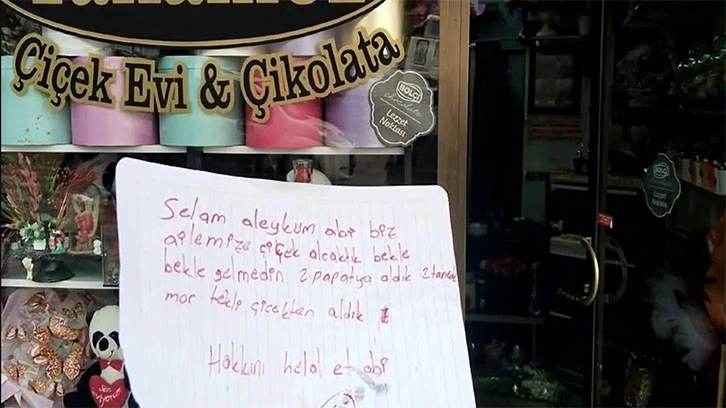 Çiçek Evi & Çikolata
BOLÇİ
chocolate
Lezzet
Noktası
BOLÇİ
Selam aleykum abi biz
ailemize çiçek alcaktık bekle
bekle gelmedin 2 papatya aldık 2 tane
mor tekli çicekten aldık
Hakkını helal et abi